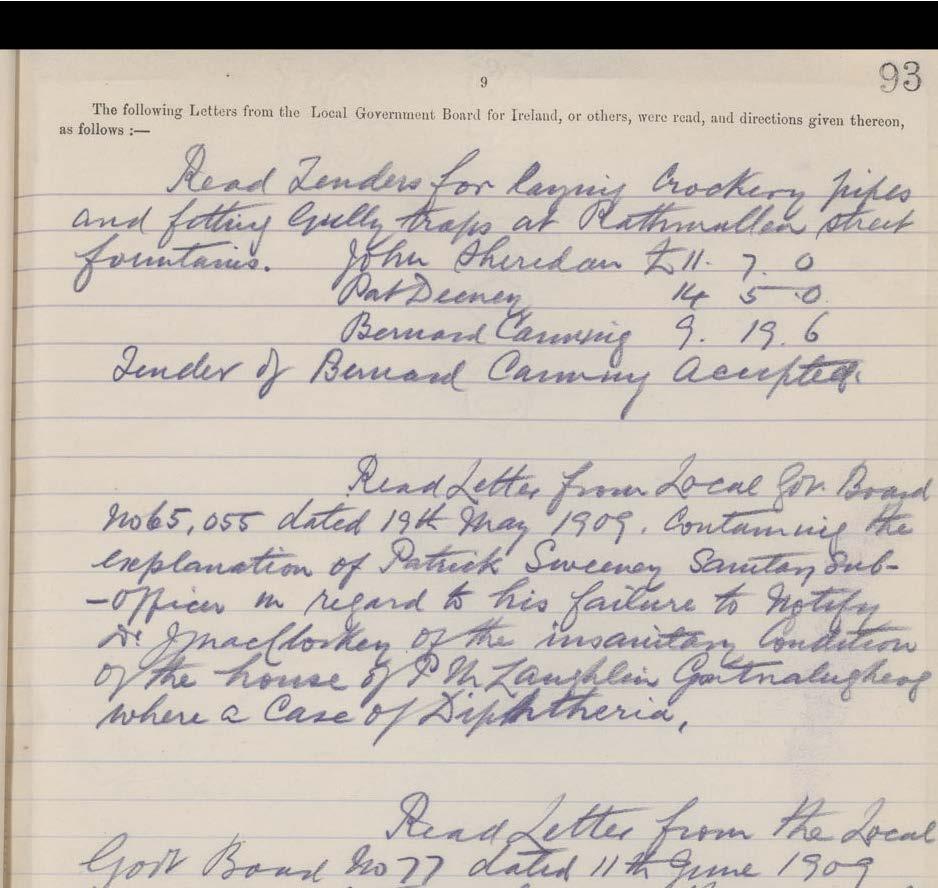 93
9
The following Letters from the Local Government Board for Ireland, or others, were read, and directions given thereon,
as follows :—
Read Tenders for laying Crockery pipes
and fitting Gully traps at Rathmullen street
fountains. John Sheridan £11. 7. 0
Pat Deeney 14 5 0
Bernard Canning 9. 19. 6
Tender of Bernard Canning Accepted.
Read Letter from Local Gov. Board
No 65,055 dated 19th May 1909. Containing the
explanation of Patrick Sweeney Sanitary Sub-
-Officer in regard to his failure to Notify
Dr. J MacCloskey of the insanitary Condition
of the house of P McLaughlin
where a Case of Diphtheria,
Read Letter from the Local
Govt Board No 77 dated 11th June 1909